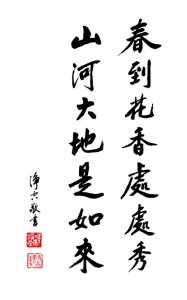 春到花香處處秀
山河大地是如來
淨空敬書